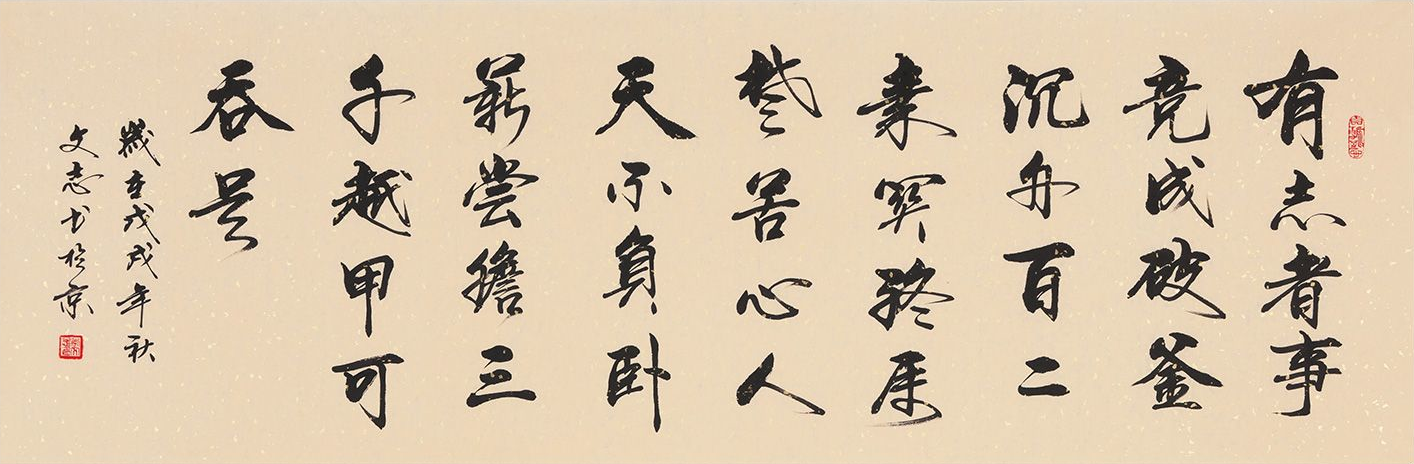 有志者事
竟成破釜
沉舟百二
秦関終属
楚苦心人
天不負卧
薪尝膽三
千越甲可
吞吴
歲在戊戌年秋
文志书於京